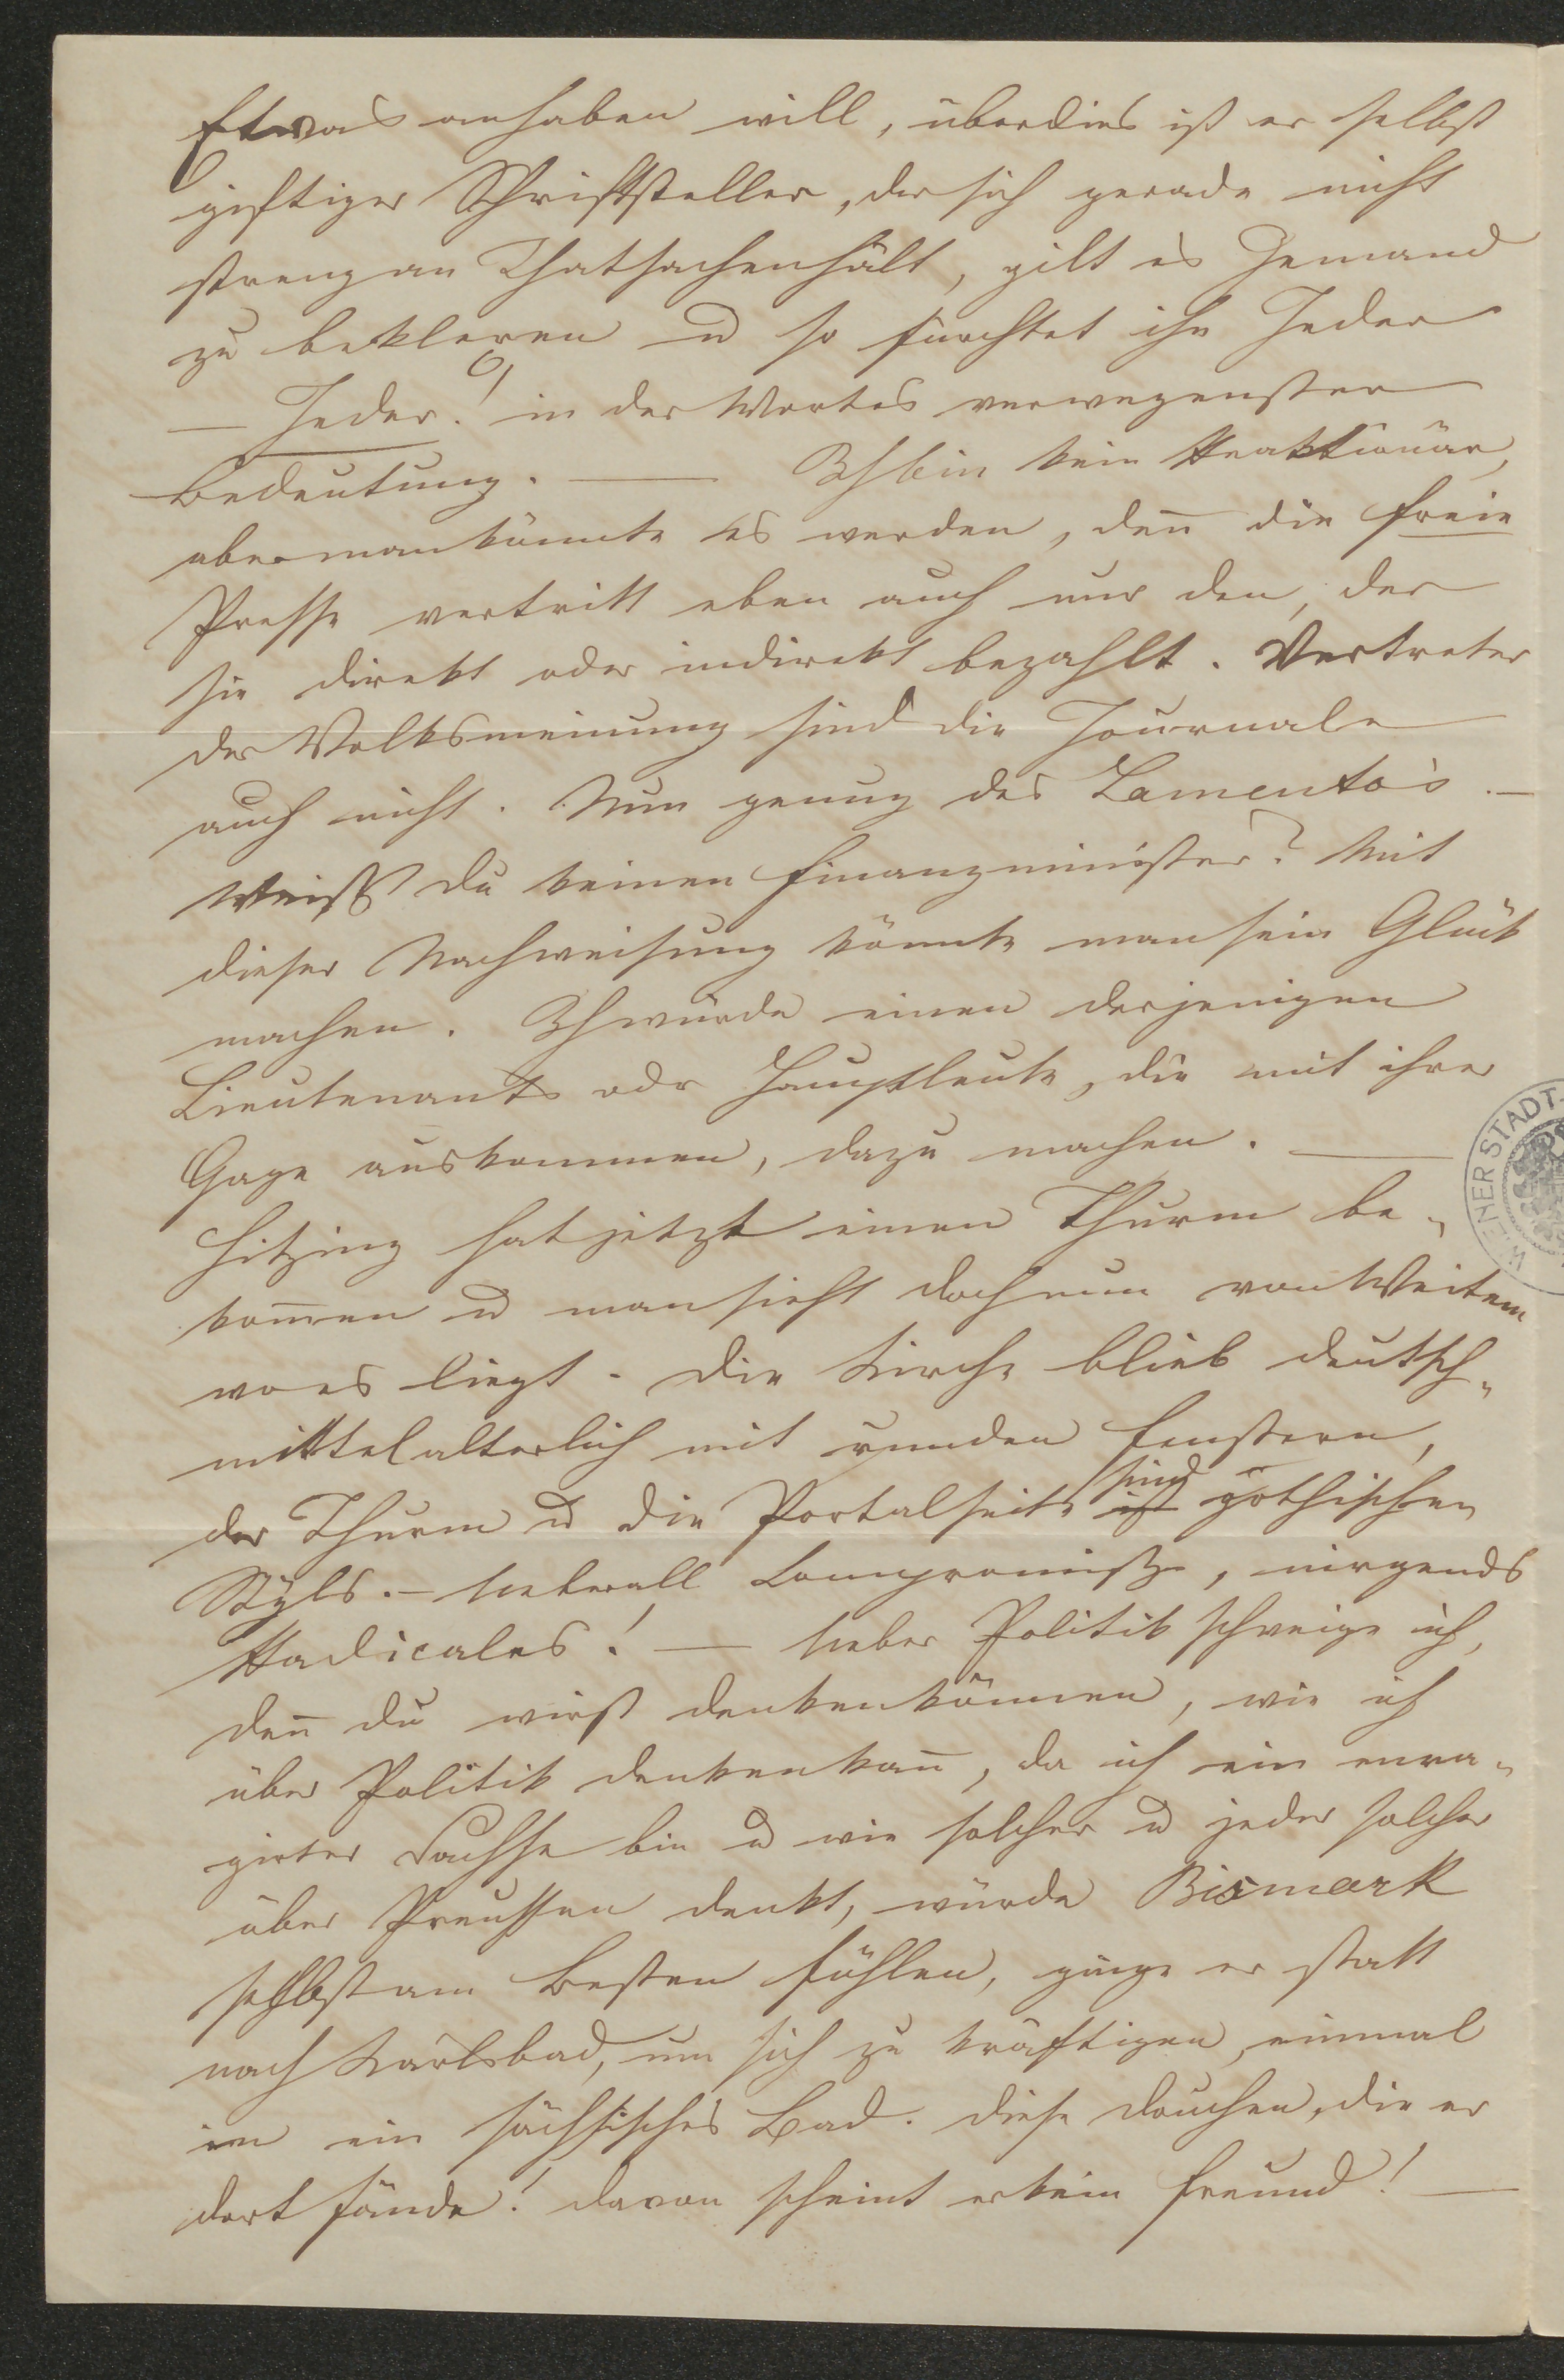 Etwas anhaben will, überdies ist er selbst
giftiger Schriftsteller, der sich gerade nicht
streng an Thatsachen hält, gilt es Jemand
zu bekleren u so fürchtet ihn Jeder
— Jeder! in der Wortes verwegensten
Bedeutung. — Ich bin kein Reaktionär,
aber man könnte es werden, den̄ die freie
Presse vertritt eben auch nur den, der
sie direkt oder indirekt bezahlt. Vertreter
der Volksmeinung sind die Journale
auch nicht. Nun genug des Lamento's. —
Weißt du keinen Finanzminister? Mit
dieser Nachweisung könnte man sein Glück
machen. Ich würde einen derjenigen
Lieutenants oder Hauptleute, die mit ihrer
Gage auskommen, dazu machen. —
Hitzing hat jetzt einen Thurm be-
kom̄en u man sieht doch nun von Weitem
wo es liegt. Die Kirche blieb deutsch-
mittelalterlich mit runden Fenstern,
der Thurm u die Portalseite ist sind gothischen
Styls. — Ueberall Compromiße, nirgends
Radicales! — Ueber Politik schweige ich,
den̄ du wirst denken können, wie ich
über Politik denken kan̄, da ich ein enra-
girter Sachse bin u wie solcher u jeder solcher
über Preussen denkt, würde Bismark
selbst am Besten fühlen, ginge er statt
nach Karlsbad, um sich zu kräftigen, einmal
in ein sächsisches Bad. Diese Douchen, die er
dort fände! Davon scheint er kein Freund! —
WIENER STADT-